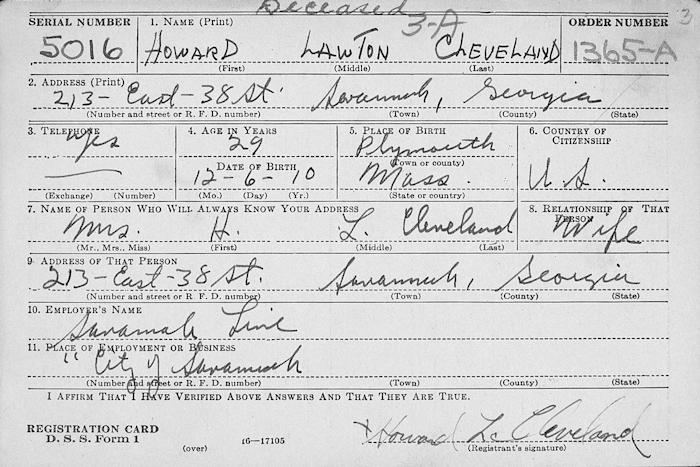 Deceased
3-A
3
SERIAL NUMBER 1. NAME (Print) ORDER NUMBER
5016 HOWARD LAWTON CLEVELAND 1365-A
(First) (Middle) (Last)
2. ADDRESS (Print)
213- East-38 St. Savannah, Georgia
(Number and street or R. F. D. number) (Town) (County) (State)
3. TELEPHONE 4. AGE IN YEARS 5. PLACE OF BIRTH 6. COUNTRY OF CITIZENSHIP
Yes 29 Plymouth
DATE OF BIRTH (Town or county)
12-6-10 Mass. U.S.
(Exchange) (Number) (Mo.) (Day) (Yr.) (State or country)
7. NAME OF PERSON WHO WILL ALWAYS KNOW YOUR ADDRESS 8. RELATIONSHIP OF THAT PERSON
Mrs. H. L. Cleveland Wife
(Mr., Mrs., Miss) (First) (Middle) (Last)
9. ADDRESS OF THAT PERSON
213-East-38 St. Savannah, Georgia
(Number and street or R. F. D. number) (Town) (County) (State)
10. EMPLOYER'S NAME
Savannah Line
11. PLACE OF EMPLOYMENT OR BUSINESS
"City of Savannah
(Number and street or R. F. D. number) (Town) (County) (State)
I AFFIRM THAT I HAVE VERIFIED ABOVE ANSWERS AND THAT THEY ARE TRUE.
REGISTRATION CARD
D. S. S. Form 1 (over) 16-17105
x Howard L. Cleveland
(Registrant's signature)